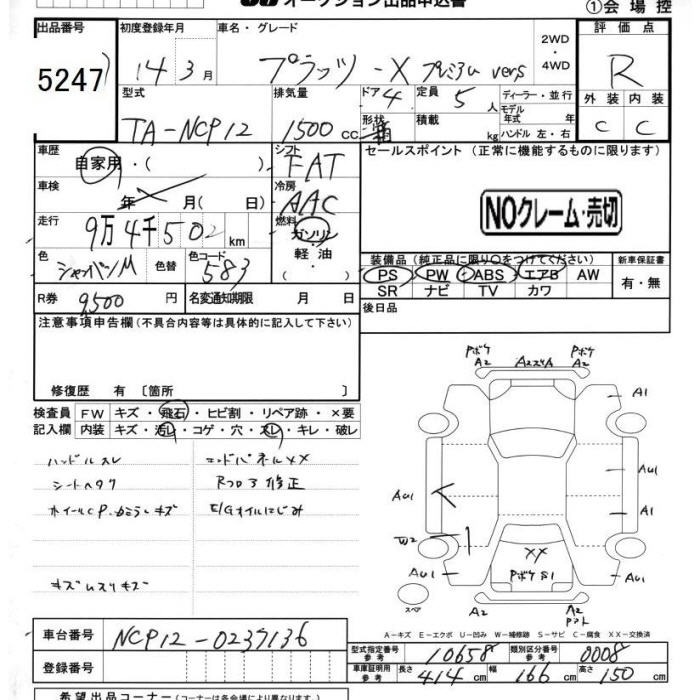 オークション出品申込書
①会場控
出品番号
5247
初度登録年月
14 3月
車名・グレード
プラッツ-X プレミアム vers
2WD
・
4WD
評価点
R
型式
TA-NCP12
排気量
1500cc
ドア
4
定員
5人
形状
積載
kg
ディーラー・並行
モデル
年式 年
ハンドル 左・右
外装 内装
C C
車歴
自家用・( )
シフト
FAT
セールスポイント (正常に機能するものに限ります)
車検
年 月( 日)
冷房
AAC
NOクレーム・売切
走行
9万4千502km
燃料
ガソリン
・
軽油
色
シャンパンM
色替
色コード
583
装備品(純正品に限り○をつけてください)
新車保証書
PS PW ABS エアB AW
SR ナビ TV カワ
有・無
R券
9500円
名変通知期限 月 日
後日品
注意事項申告欄(不具合内容等は具体的に記入して下さい)
修復歴 有 〔箇所 〕
検査員
記入欄
FW キズ・飛石・ヒビ割・リペア跡・×要
内装 キズ・汚レ・コゲ・穴・スレ・キレ・破レ
ハンドルスレ
エンドパネルXX
シートヘタリ
Rフロア修正
ホイールCP・カミライキズ
E/Gオイルにじみ
キズムスリキズ
Pボケ
A2
A2スリA
Pボケ
A2
A1
AU1
AU1
A1
W2
AU1
XX
Pボケ S1
AU1
スペア
A2
A2
A-キズ E-エクボ U-凹み W-補修跡 S-サビ C-腐食 XX-交換済
車台番号
NCP12-0237136
型式指定番号
参考
10658
類別区分番号
参考
0008
登録番号
車庫証明用
参考
長さ 414cm
幅 166cm
高さ 150cm
希望出品コーナー(コーナーは各会場により異なります)